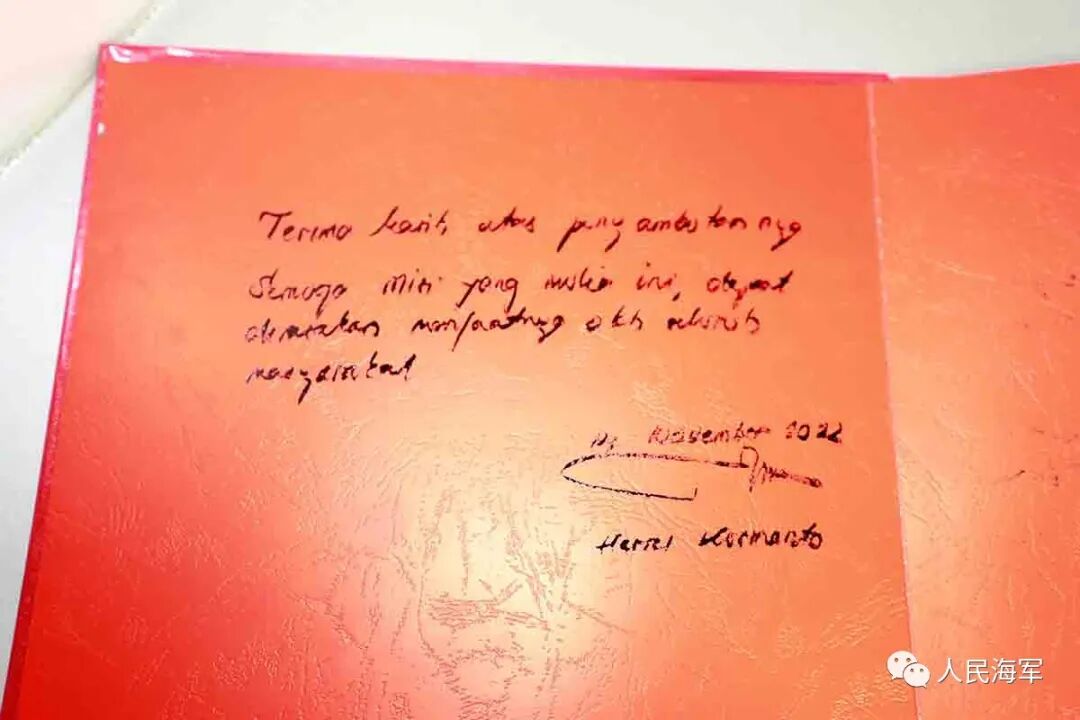 Terima kasih atas penyambutannya
Semoga misi yang mulia ini, dapat
dirasakan manfaatnya oleh seluruh
masyarakat
November 2022
人民海军